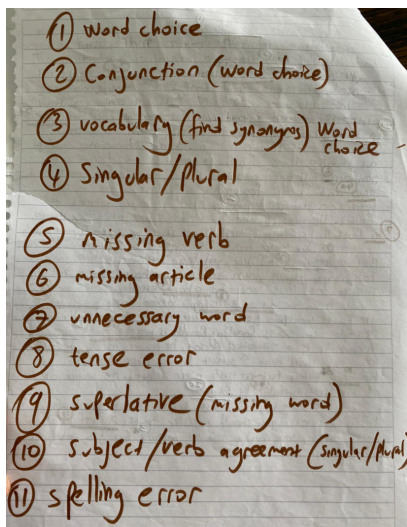 ① word choice
② Conjunction (word choice)
③ vocabulary (find synonyms) Word choice
④ Singular/Plural
⑤ missing verb
⑥ missing article
⑦ unnecessary word
⑧ tense error
⑨ superlative (missing word)
⑩ subject/verb agreement (singular/plural)
⑪ spelling error